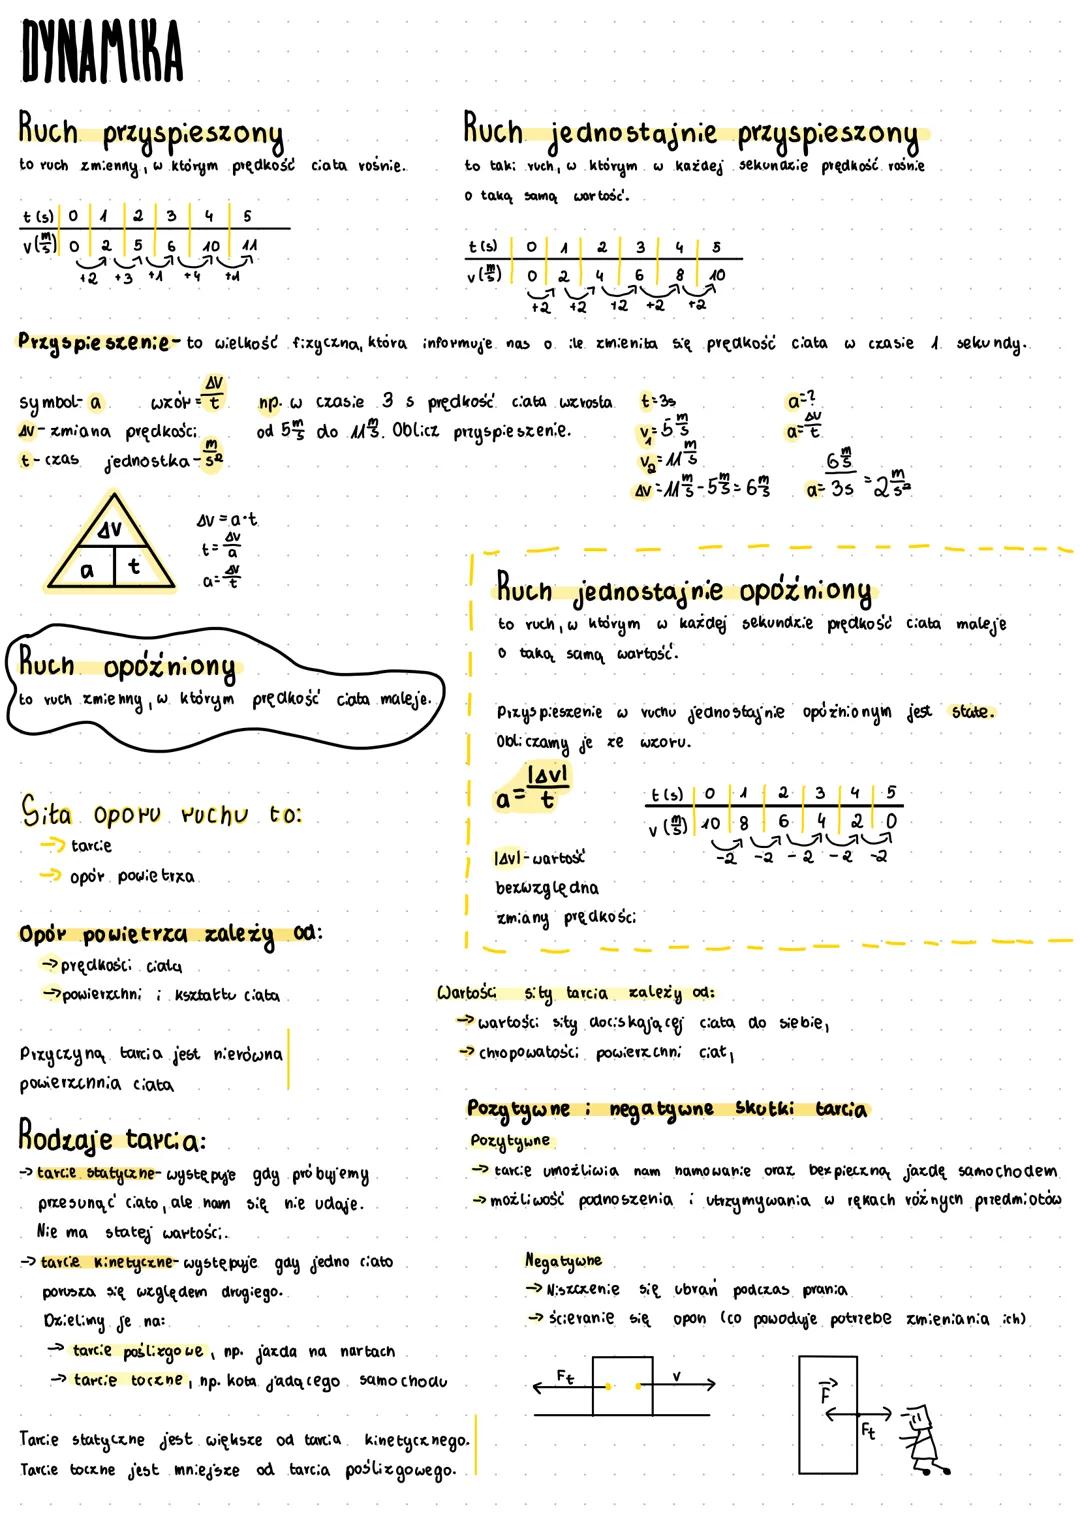 DYNAMIKA
Ruch przyspieszony
to ruch zmienny, w którym prędkość ciała rośnie.
t(s) 0 1 2 3 4 5
v(m/s) 0 2 5 6 10 11
+2 +3 +1 +4 +1
Ruch jednostajnie przyspieszony
to taki ruch, w którym w każdej sekundzie prędkość rośnie
o taką samą wartość.
t(s) 0 1 2 3 4 5
v(m/s) 0 2 4 6 8 10
+2 +2 +2 +2 +2
Przyspieszenie - to wielkość fizyczna, która informuje nas o ile zmieniła się prędkość ciała w czasie 1 sekundy.
symbol - a wzór = Δv/t
Δv - zmiana prędkości
t - czas jednostka - m/s²
np. w czasie 3 s prędkość ciała wzrosła
od 5 m/s do 11 m/s. Oblicz przyspieszenie.
t = 3s
v₁ = 5 m/s
v₂ = 11 m/s
Δv = 11 m/s - 5 m/s = 6 m/s
a = ?
a = Δv/t
a = 6 m/s / 3s = 2 m/s²
Δv
a t
Δv = a·t
t = Δv/a
a = Δv/t
Ruch opóźniony
to ruch zmienny, w którym prędkość ciała maleje.
Ruch jednostajnie opóźniony
to ruch, w którym w każdej sekundzie prędkość ciała maleje
o taką samą wartość.
Przyspieszenie w ruchu jednostajnie opóźnionym jest stałe.
Obliczamy je ze wzoru.
a = |Δv|/t
|Δv| - wartość
bezwzględna
zmiany prędkości
t(s) 0 1 2 3 4 5
v(m/s) 10 8 6 4 2 0
-2 -2 -2 -2 -2
Siła oporu ruchu to:
→ tarcie
→ opór powietrza
Opór powietrza zależy od:
→ prędkości ciała
→ powierzchni i kształtu ciała
Przyczyną tarcia jest nierówna
powierzchnia ciała
Wartości siły tarcia zależy od:
→ wartości siły dociskającej ciała do siebie,
→ chropowatości powierzchni ciał,
Rodzaje tarcia:
→ tarcie statyczne - występuje gdy próbujemy
przesunąć ciało, ale nam się nie udaje.
Nie ma stałej wartości.
→ tarcie kinetyczne - występuje gdy jedno ciało
porusza się względem drugiego.
Dzielimy je na:
→ tarcie poślizgowe, np. jazda na nartach
→ tarcie toczne, np. koła jadącego samochodu
Tarcie statyczne jest większe od tarcia kinetycznego.
Tarcie toczne jest mniejsze od tarcia poślizgowego.
Pozytywne i negatywne skutki tarcia
Pozytywne
→ tarcie umożliwia nam hamowanie oraz bezpieczną jazdę samochodem
→ możliwość podnoszenia i utrzymywania w rękach różnych przedmiotów
Negatywne
→ Niszczenie się ubrań podczas prania
→ ścieranie się opon (co powoduje potrzebe zmieniania ich)
Ft v
F
Ft